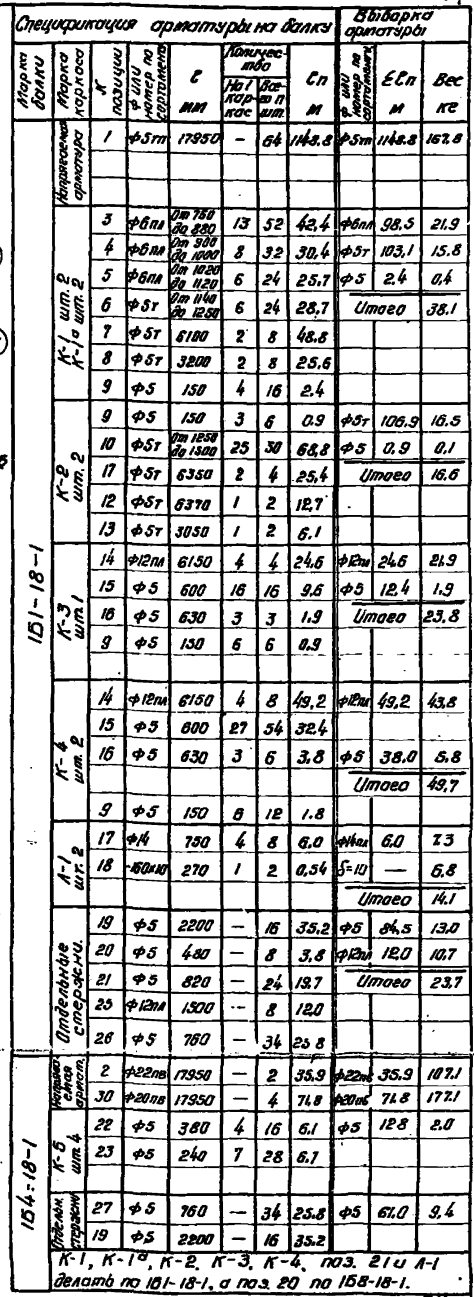 Спецификация арматуры на балку
Выборка арматуры
Марка балки
Марка каркаса
N позиции
ф или номер по сортаменту
ℓ мм
Количество
На 1 каркас
Все-го п шт.
ℓп м
ф или номер по сортаменту
Σℓп м
Вес кг
1Б1-18-1
Напрягаемая арматура
1 ф5тп 17950 — 64 1148.8 ф5тп 1148.8 167.8
К-1 шт. 2
К-1а шт. 2
3 ф6пл От 760 до 880 13 52 42,4 ф6пл 98,5 21.9
4 ф6пл От 900 до 1000 8 32 30,4 ф5т 103,1 15.8
5 ф6пл От 1020 до 1120 6 24 25,7 ф5 2.4 0,4
6 ф5т От 1140 до 1250 6 24 28,7 Итого 38.1
7 ф5т 6100 2 8 48.8
8 ф5т 3200 2 8 25.6
9 ф5 150 4 16 2.4
К-2 шт. 2
9 ф5 150 3 6 0.9 ф5т 106,9 16.5
10 ф5т От 1250 до 1500 25 50 68,8 ф5 0.9 0,1
17 ф5т 6350 2 4 25,4 Итого 16.6
12 ф5т 6370 1 2 12,7
13 ф5т 3050 1 2 6.1
К-3 шт. 1
14 ф12пл 6150 4 4 24,6 ф12пл 24.6 21.9
15 ф5 600 16 16 9.6 ф5 12.4 1.9
16 ф5 630 3 3 1.9 Итого 23,8
9 ф5 150 6 6 0.9
К-4 шт. 2
14 ф12пл 6150 4 8 49,2 ф12пл 49,2 43,8
15 ф5 600 27 54 32.4
16 ф5 630 3 6 3,8 ф5 38.0 5.8
Итого 49,7
9 ф5 150 6 12 1.8
Л-1 шт. 2
17 ф14 750 4 8 6.0 ф14пл 6,0 7.3
18 -160х10 270 1 2 0,54 δ=10 — 6,8
Итого 14.1
Отдельные стержни.
19 ф5 2200 — 16 35.2 ф5 84,5 13,0
20 ф5 480 — 8 3,8 ф12пл 12.0 10,7
21 ф5 820 — 24 19.7 Итого 23.7
25 ф12пл 1500 — 8 12.0
26 ф5 760 — 34 25.8
1Б4-18-1
2 ф22пв 17950 — 2 35.9 ф22пв 35.9 107.1
30 ф20пв 17950 — 4 71,8 ф20пв 71.8 177.1
К-5 шт. 4
22 ф5 380 4 16 6.1 ф5 12.8 2.0
23 ф5 240 7 28 6.7
27 ф5 760 — 34 25.8 ф5 61.0 9,4
19 ф5 2200 — 16 35.2
К-1, К-1а, К-2, К-3, К-4, поз. 21 и Л-1
делать по 1Б1-18-1, а поз. 20 по 1Б8-18-1.